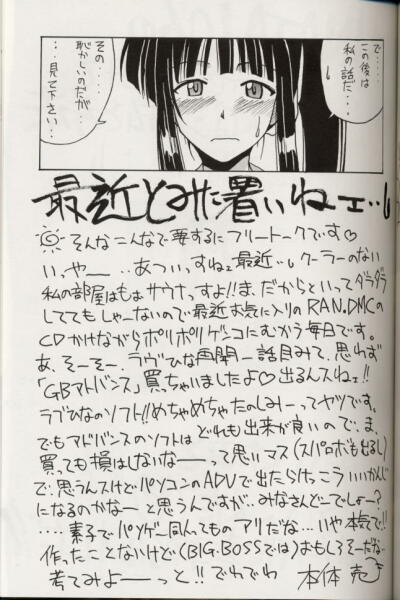 で・・・
この後は
私の話だ・・
その・・・・
恥かしいのだが・・
・・・見て下さい・・
最近とみに暑いねェ・・
そんなこんなで要するにフリートークです♡
いっやー・・あついっすねェ最近・・クーラーのない
私の部屋はもぉサウナっすよ!!ま、だからといってダラダラ
しててもしゃーないので最近お気に入りのRAN.DMCの
CDかけながらポリポリゲンコにむかう毎日です。
あ、そーそー、ラヴひな再開一話目みて、思わず
「GBアドバンス」買っちゃいましたよ♡出るんスねェ!!
ラブひなのソフト!!めちゃめちゃたのしみーってヤツです。
でもアドバンスのソフトはどれも出来が良いので、ま、
買っても損はしないなーーって思いマス(スパロボも出るし)
で、思うんスけどパソコンのADVで出たらけっこういいかんじ
になるのかなーと思うんですが・・みなさんどーでしょー?
・・・・素子でパソゲー同人ってものアリだな・・・いや本気で!!
作ったことないけど(BIG.BOSSでは)おもしろそーだな・
考えてみよーーっと!!でわでわ 本体 売